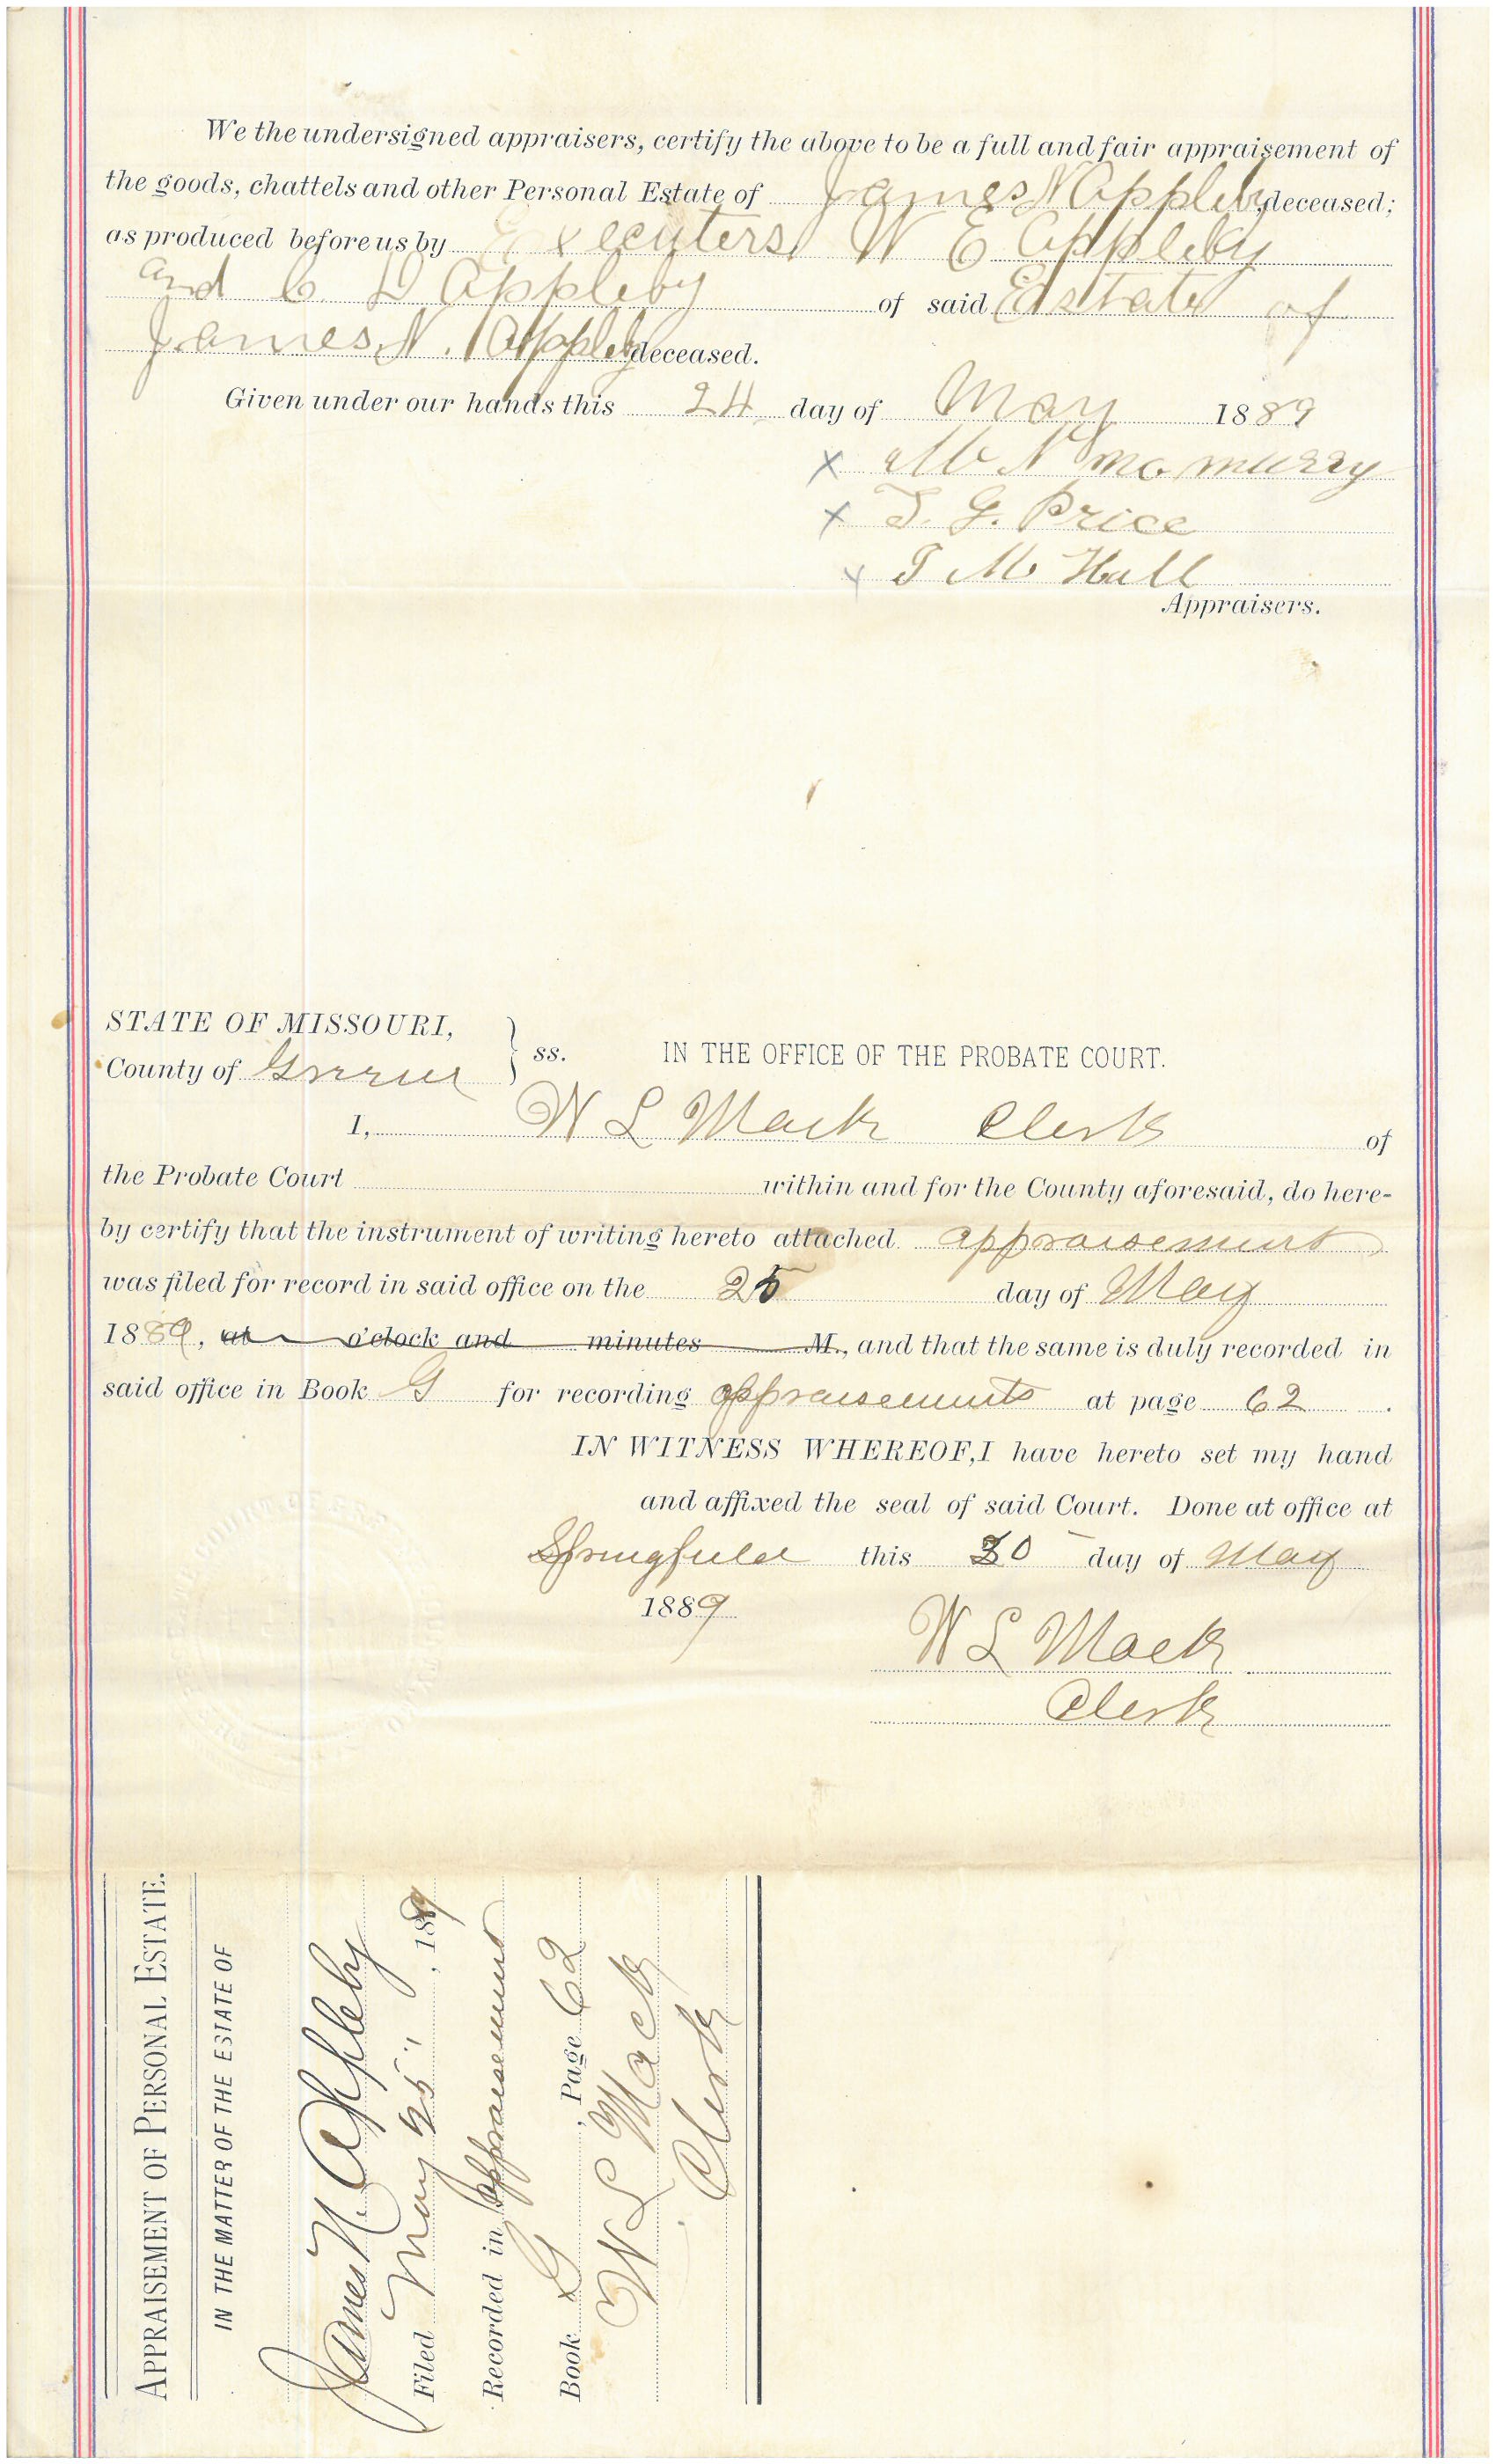 We the undersigned appraisers, certify the above to be a full and fair appraisement of
the goods, chattels and other Personal Estate of James N Appleby deceased;
as produced before us by Executers W E Appleby
and C. D Appleby of said Estate of
James N. Appleby deceased.
Given under our hands this 24 day of May 1889
x M N mc murry
x T. G. Price
x T M Hall
Appraisers.
STATE OF MISSOURI,
County of Greene } ss. IN THE OFFICE OF THE PROBATE COURT.
I, W L Mack Clerk of
the Probate Court within and for the County aforesaid, do here-
by certify that the instrument of writing hereto attached appraisement
was filed for record in said office on the 25 day of May
1889, at o'clock and minutes M., and that the same is duly recorded in
said office in Book G for recording appraisements at page 62.
IN WITNESS WHEREOF, I have hereto set my hand
and affixed the seal of said Court. Done at office at
Springfield this 30 day of May
1889
W L Mack
Clerk
APPRAISEMENT OF PERSONAL ESTATE.
IN THE MATTER OF THE ESTATE OF
James N. Appleby
Filed May 25", 1889
Recorded in appraisement
Book G, Page 62
W L Mack
Clerk